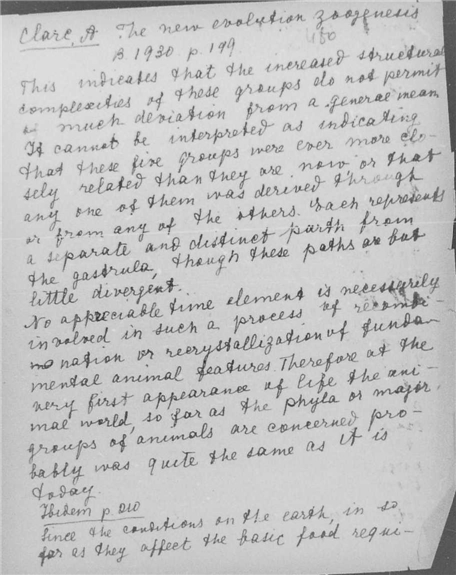 Clarc, A The new evolution zoogenesis
B. 1930 p. 199.
This indicates that the increased structural
complexities of these groups do not permit
much deviation from a general mean
It cannot be interpreted as indicating
that these five groups were ever more clo-
sely related than they are now or that
any one of them was derived through
or from any of the others. Each represents
a separate and distinct parth from
the gastrula, though these paths as but
little divergent.
No appreciable time element is necessarily
involved in such a process of recombi-
nation or recrystallization of funda-
mental animal features. Therefore at the
very first appearance of life the ani-
mal world, so far as the phyla or major
groups of animals are concerned pro-
bably was quite the same as it is
today.
Ibidem p. 210
Since the conditions on the earth, in so
far as they affect the basic food requi-